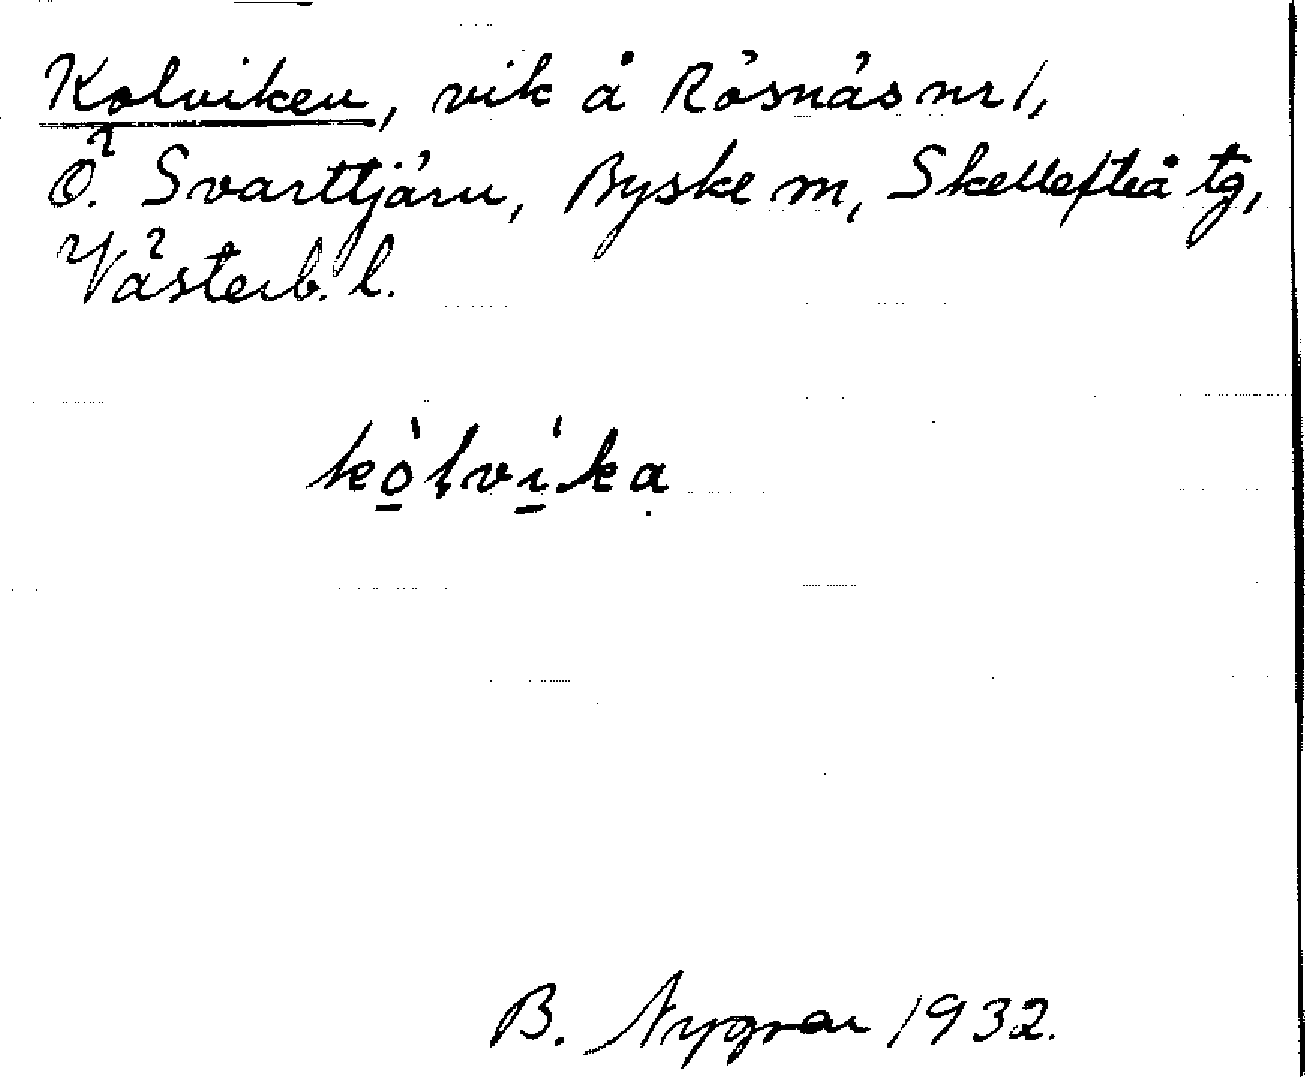 Kolviken, vik å Rösnäs nr 1,
Ö. Svarttjärn, Byske m, Skellefteå tg,
Västerb. l.
kò̲lvì̲kạ
B. Nygren 1932.